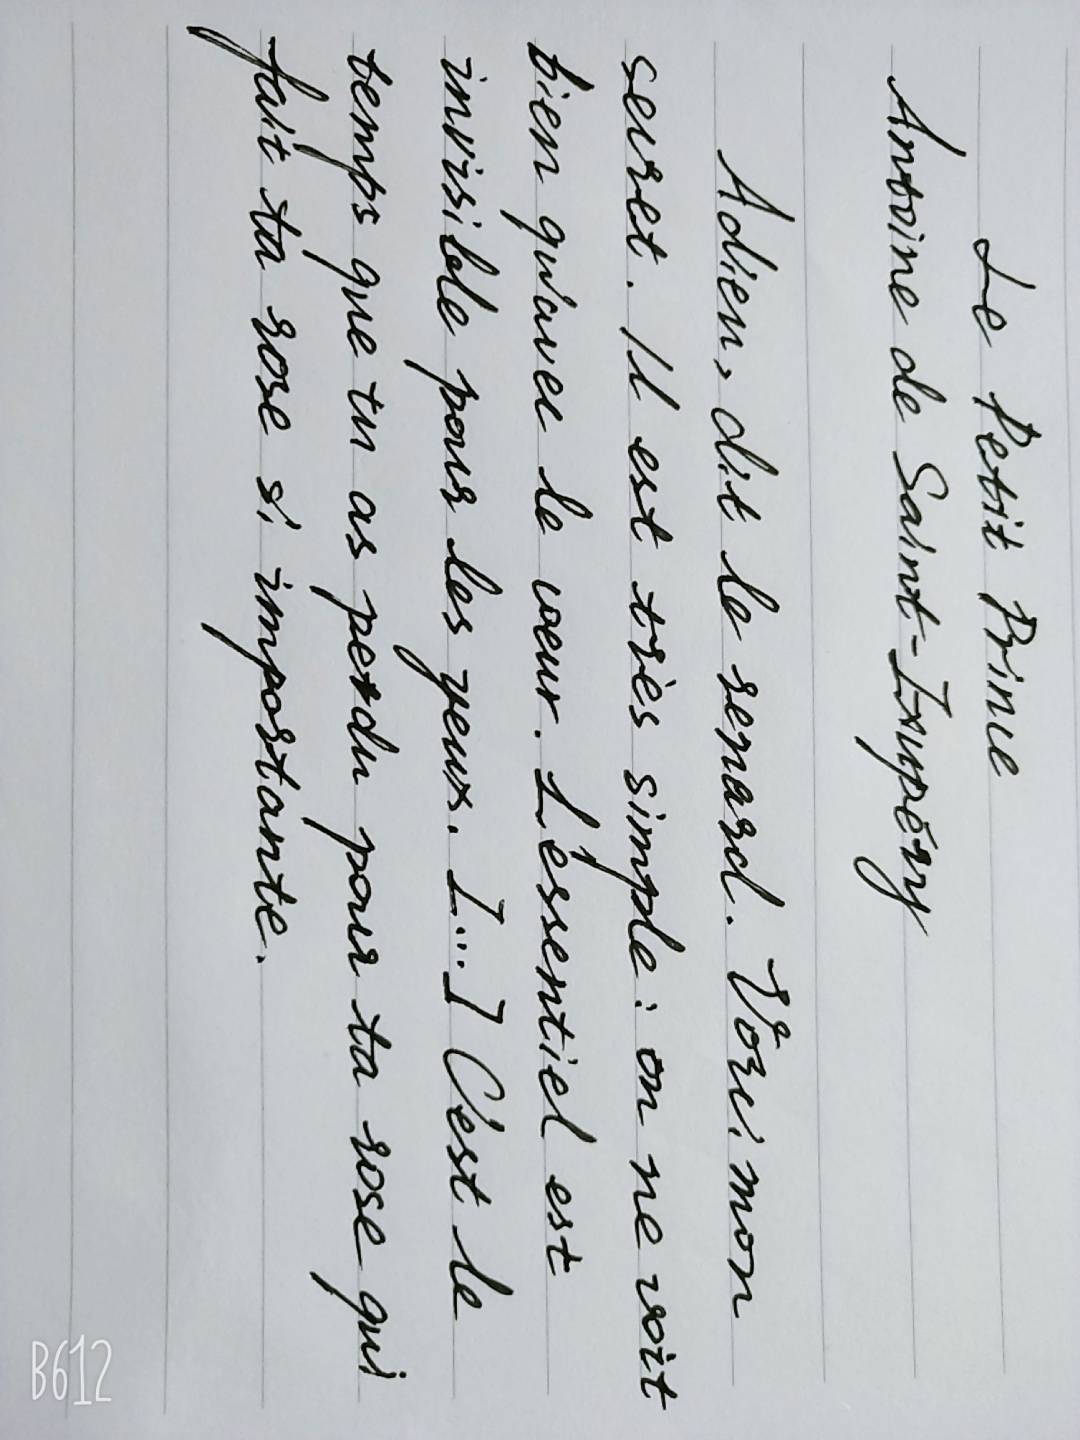 Le Petit Prince
Antoine de Saint-Exupéry
Adieu, dit le renard. Voici mon
secret. Il est très simple : on ne voit
bien qu'avec le cœur. L'essentiel est
invisible pour les yeux. [...] C'est le
temps que tu as perdu pour ta rose qui
fait ta rose si importante.
B612